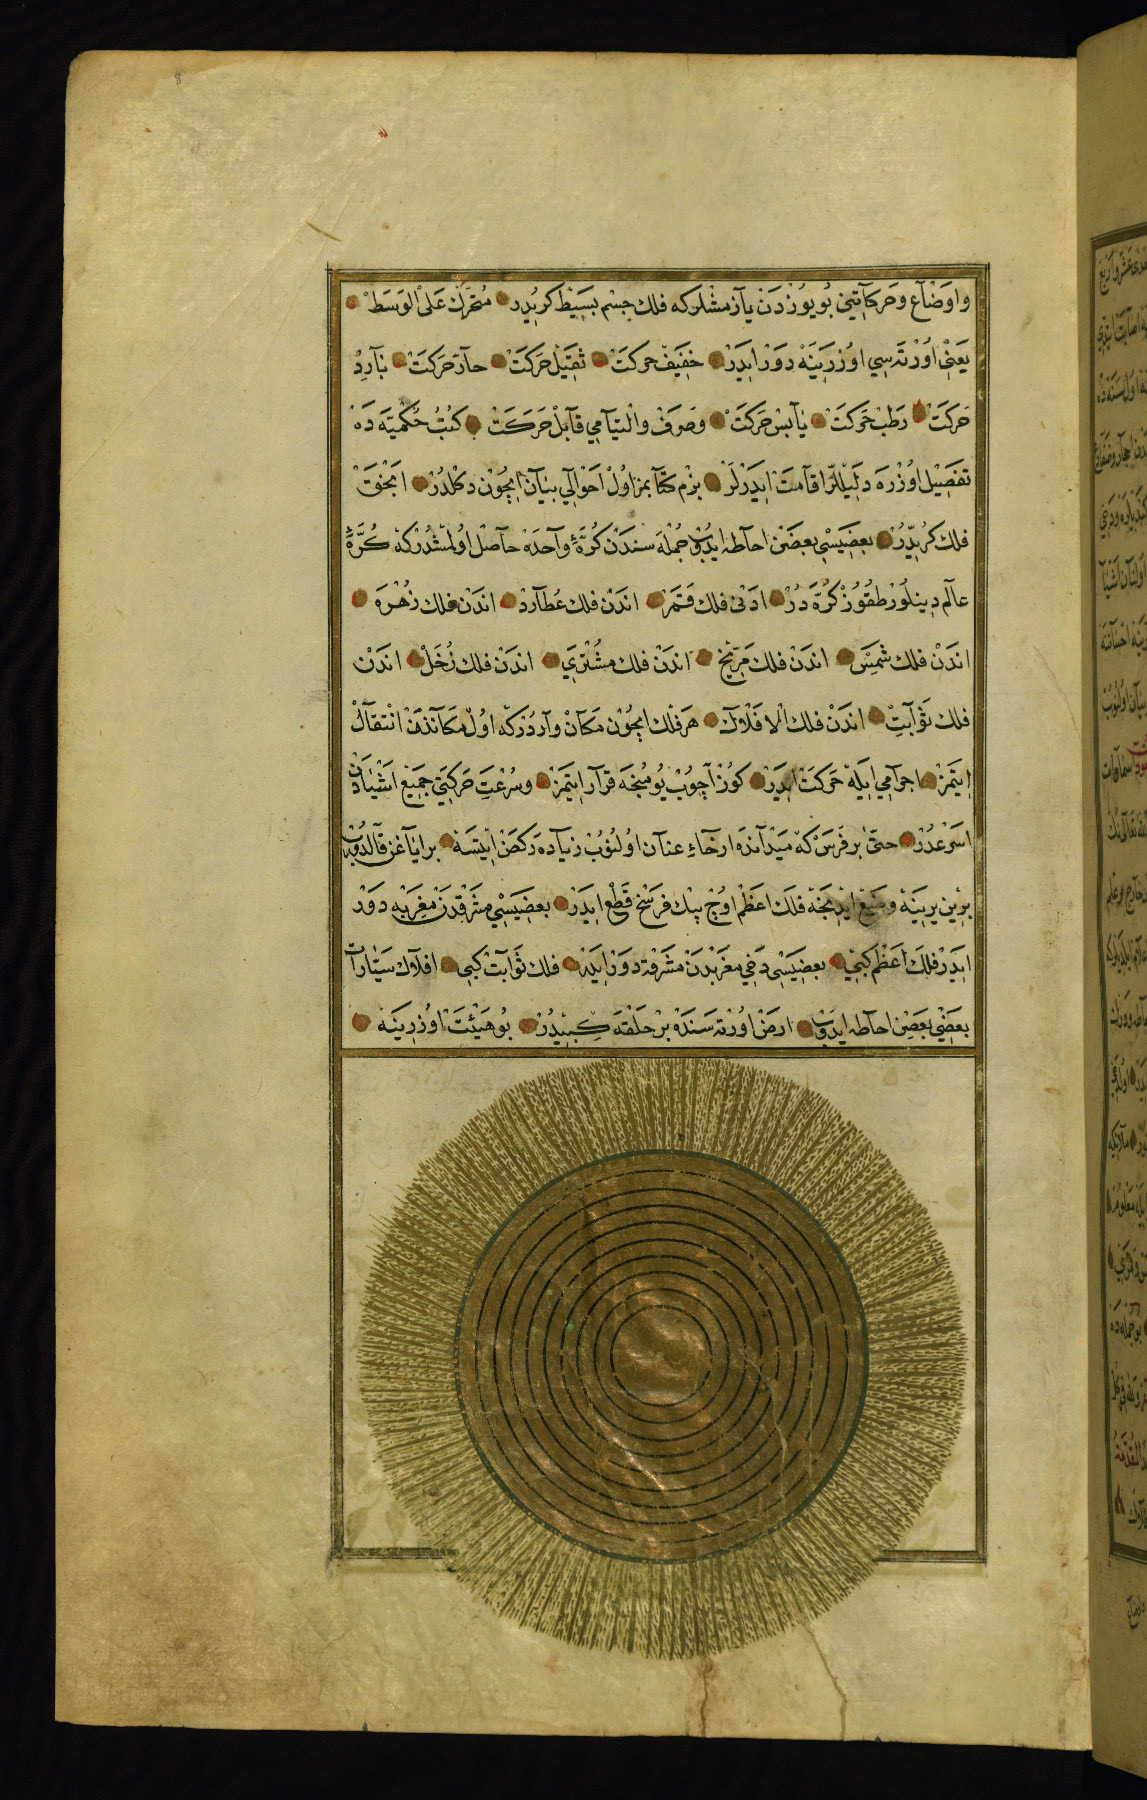 واوضاع وحركاتين بو يوزدن يازمشلركه فلك جسم بسيط كريدر متحرك على الوسط
يعنى اورته سي اوزرينه دور ايدر خفيف حركت ثقيل حركت حار حركت بارد
حركت رطب حركت يابس حركت وخرق والتيامى قابل حركت كتب حكميه ده
تفصيل اوزره دليللر اقامت ايدرلر بزم كتابمز اول احوالي بيان ايچون دكلدر انجق
فلك كريدر بعضيسي بعضن احاطه ايدوب جمله سندن كرهٔ واحده حاصل اولمشدركه كرهٔ
عالم دينلور طقوز كره در ادنى فلك قمر اندن فلك عطارد اندن فلك زهره
اندن فلك شمس اندن فلك مريخ اندن فلك مشتري اندن فلك زحل اندن
فلك ثوابت اندن فلك الافلاك هر فلك ايچون مكان واردركه اول مكاندن انتقال
ايتمز اجرامي ايله حركت ايدر كوز آچوب يومنجه قرار ايتمز وسرعت حركتي جميع اشيادن
اسرعدر حتى بر فرس كه ميدانده ارخاء عنان اولنوب زياده ركض ايتسه بر اياغن قالدوب
يرين يرينه وضع ايدنجه فلك اعظم اوچ بيك فرسخ قطع ايدر بعضيسي مشرقدن مغربه دور
ايدر فلك اعظم كبي بعضيسى دخي مغربدن مشرقه دور ايله فلك ثوابت كبي افلاك سيارات
بعضي بعضن احاطه ايدوب ارض اورته سنده بر حلقه كبيدر بو هيئت اوزرينه